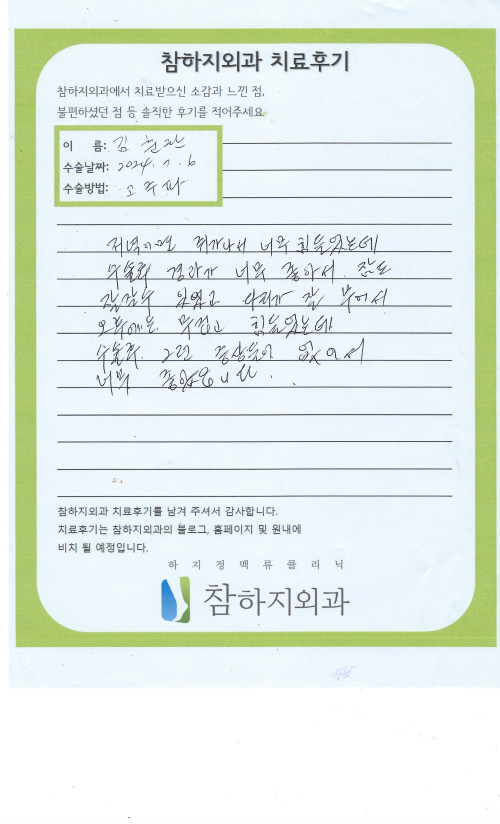 참하지외과 치료후기
참하지외과에서 치료받으신 소감과 느낀 점,
불편하셨던 점 등 솔직한 후기를 적어주세요.
이 름: 김
수술날짜: 2024. 7. 6
수술방법: 고주파
저녁이면 쥐가나서 너무 힘들었는데
수술후 경과가 너무 좋아서 잠도
잘잘수 있었고 다리가 잘 부어서
오후에는 무겁고 힘들었는데
수술후 그런 증상들이 없어서
너무 좋았습니다.
참하지외과 치료후기를 남겨 주셔서 감사합니다.
치료후기는 참하지외과의 블로그, 홈페이지 및 원내에
비치 될 예정입니다.
하지정맥류클리닉
참하지외과